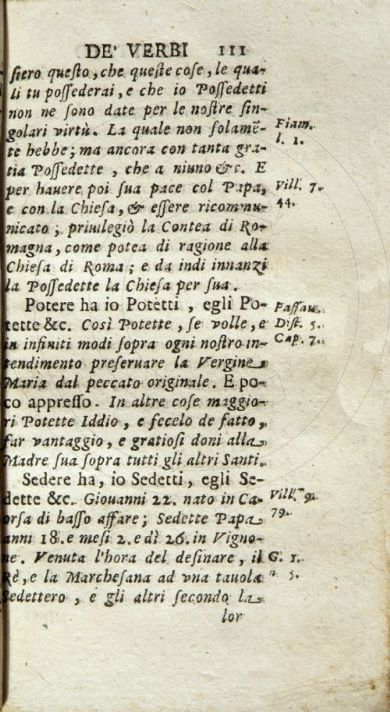 DE' VERBI 111
ſiero queſto, che queſte coſe, le qua-
li tu poſſederai, e che io Poſſedetti
non ne ſono date per le noſtre ſin-
golari virtù. La quale non ſolamẽ-
te hebbe; ma ancora con tanta gra-
tia Poſſedette, che a niuno &c. E
per hauere poi ſua pace col Papa,
e con la Chieſa, & eſſere ricomu-
nicato; priuilegiò la Contea di Ro-
magna, come potea di ragione alla
Chieſa di Roma; e da indi innanzi
la Poſſedette la Chieſa per ſua.
Potere ha io Potetti, egli Po-
tette &c. Così Potette, ſe volle, e
in infiniti modi ſopra ogni noſtro in-
tendimento preſeruare la Vergine
Maria dal peccato originale. E po-
co appreſſo. In altre coſe maggio-
ri Potette Iddio, e fecelo de fatto,
far vantaggio, e gratioſi doni alla
Madre ſua ſopra tutti gli altri Santi.
Sedere ha, io Sedetti, egli Se-
dette &c. Giouanni 22. nato in Ca-
orſa di baſſo affare; Sedette Papa
anni 18. e meſi 2. e dì 26. in Vigno-
ne. Venuta l'hora del deſinare, il
Rè, e la Marcheſana ad vna tauola
Sedettero, e gli altri ſecondo la
lor
Fiam.
l. 1.
Vill. 7.
44.
Paſſau.
Diſt. 5.
Cap. 7.
Vill. 9.
79.
G. 1.
n. 5.